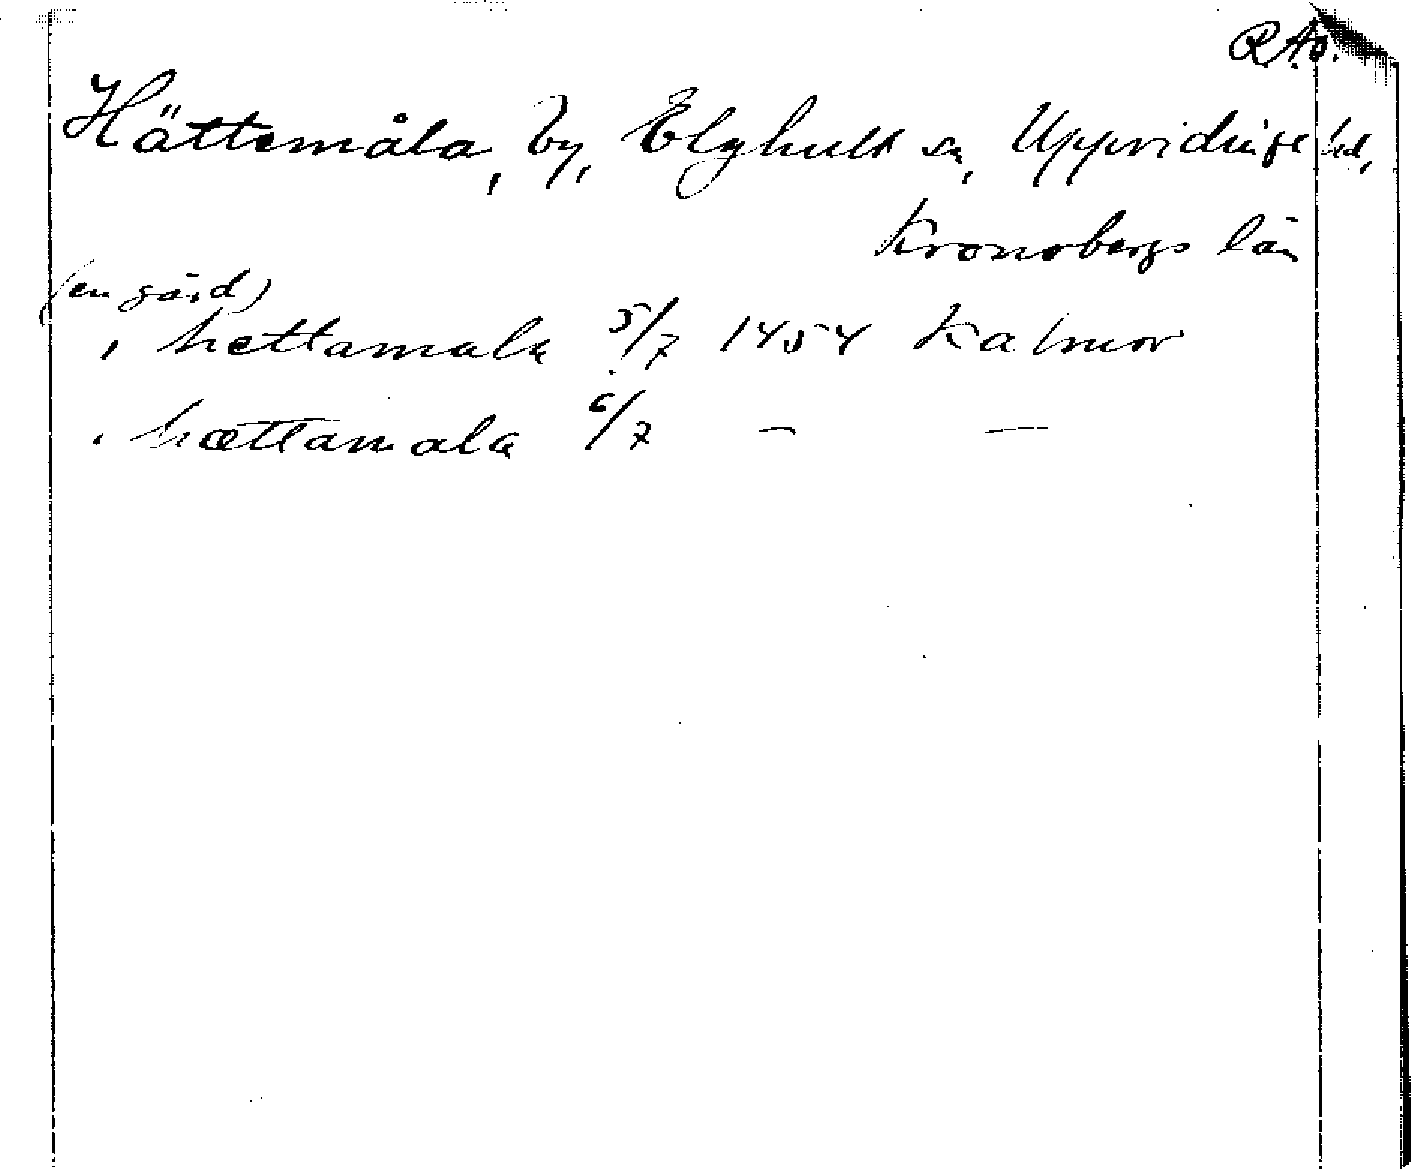 R.A.o.
Hättemåla, by, Elghult sn, Uppvidinge hd,
Kronobergs län
(en gård)
i hettamala 5/7 1454 Kalmar
i hættamala 6/7 — —